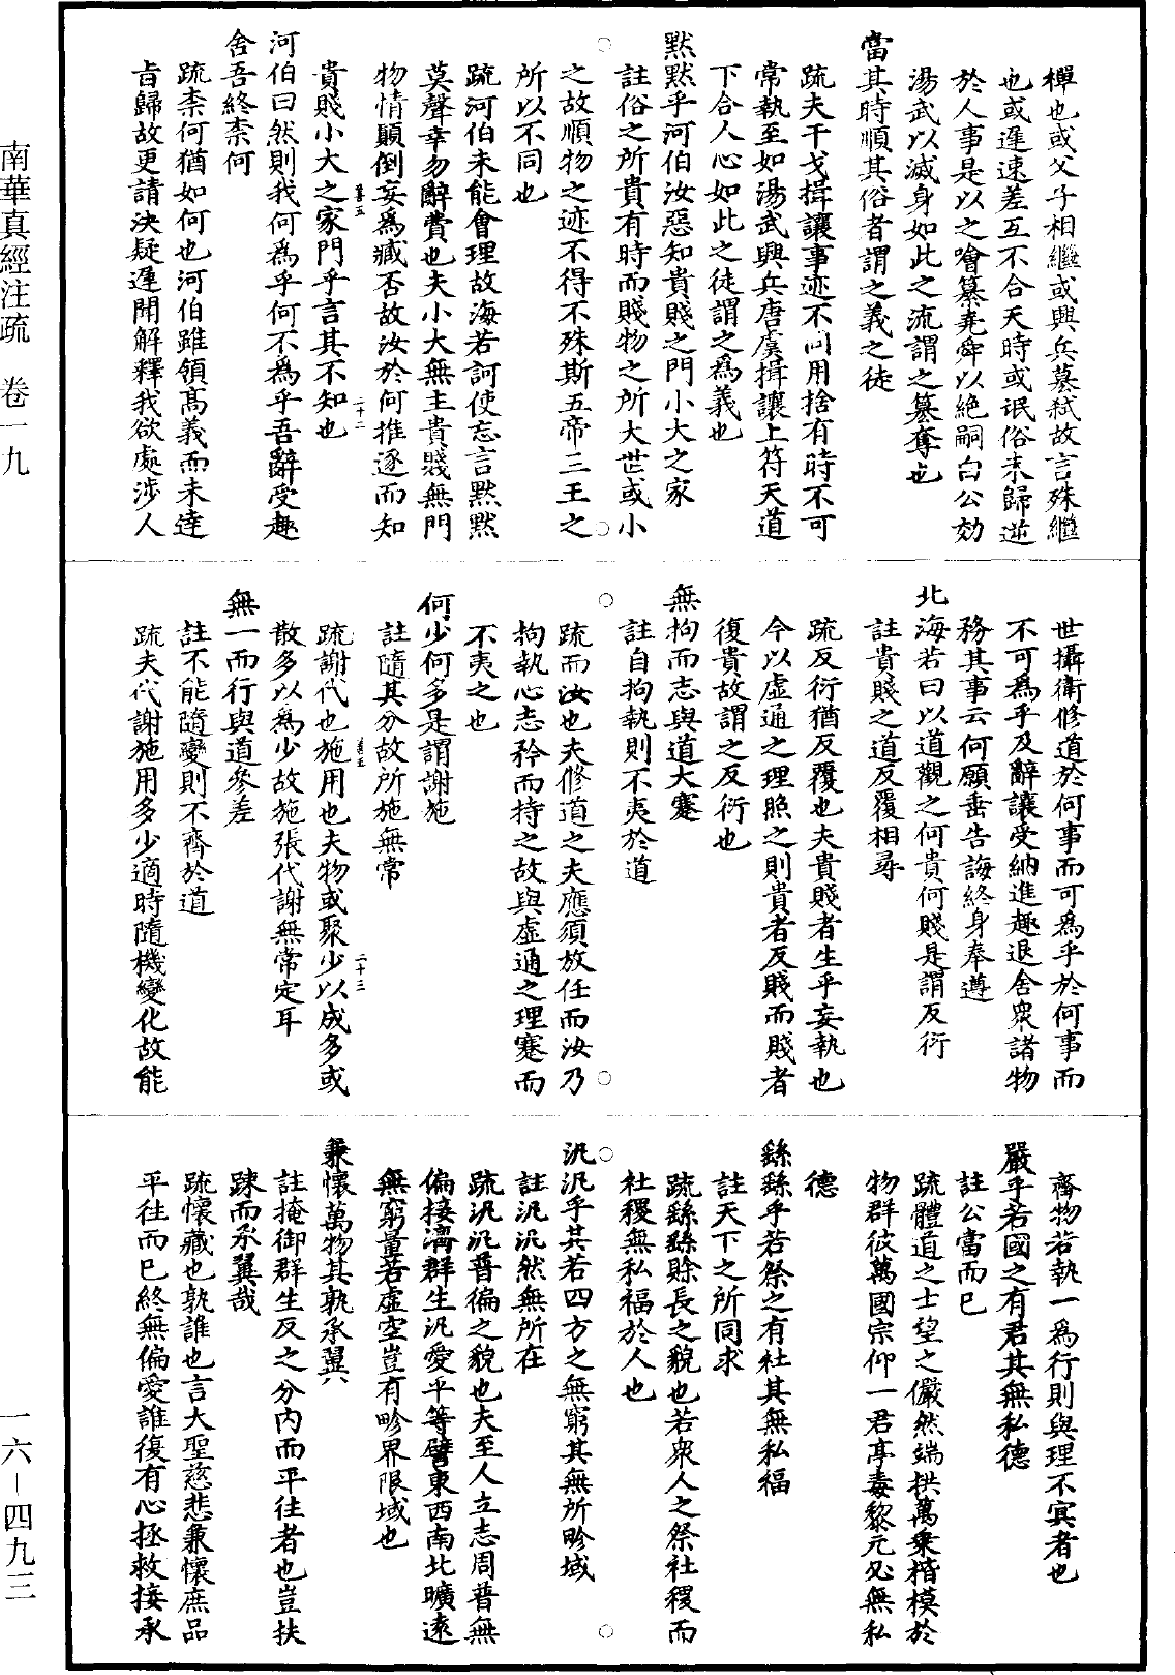 禪也或父子相繼或興兵墓弑故言殊繼
也或遲速差互不合天時或氓俗未歸逆
於人事是以之噲纂堯舜以絶嗣白公効
湯武以滅身如此之流謂之篡奪也
當其時順其俗者謂之義之徒
疏夫干戈揖讓事迹不同用捨有時不可
常執至如湯武興兵唐虞揖讓上符天道
下合人心如此之徒謂之爲義也
默默乎河伯汝惡知貴賤之門小大之家
註俗之所貴有時而賤物之所大世或小
之故順物之迹不得不殊斯五帝三王之
所以不同也
疏河伯未能會理故海若訶使忘言默默
莫聲幸勿辭費也夫小大無主貴賤無門
物情顛倒妄爲臧否故汝於何推逐而知
貴賤小大之家門乎言其不知也
河伯曰然則我何爲乎何不爲乎吾辭受趣
舍吾終柰何
疏柰何猶如何也河伯雖領髙義而未達
旨歸故更請決疑遲聞解釋我欲處涉人
世攝衛修道於何事而可爲乎於何事而
不可爲乎及辭讓受納進趣退舍衆諸物
務其事云何願垂告誨終身奉遵
北海若曰以道觀之何貴何賤是謂反衍
註貴賤之道反覆相尋
疏反衍猶反覆也夫貴賤者生乎妄執也
今以虛通之理照之則貴者反賤而賤者
復貴故謂之反衍也
無拘而志與道大蹇
註自拘執則不夷於道
疏而汝也夫修道之夫應須放任而汝乃
拘執心志矜而持之故與虛通之理蹇而
不夷之也
何少何多是謂謝施
註隨其分故所施無常
疏謝代也施用也夫物或聚少以成多或
散多以爲少故施張代謝無常定耳
無一而行與道參差
註不能隨變則不齊於道
疏夫代謝施用多少適時隨機變化故能
齊物若執一爲行則與理不冥者也
嚴乎若國之有君其無私德
註公當而已
疏體道之士望之儼然端拱萬乘楷模於
物群彼萬國宗仰一君亭毒黎元必無私
德
繇繇乎若祭之有社其無私福
註天下之所同求
疏繇繇賒長之貌也若衆人之祭社稷而
社稷無私福於人也
汎汎乎其若四方之無窮其無所畛域
註汎汎然無所在
疏汎汎普徧之貌也夫至人立志周普無
偏接濟群生汎愛平等譬東西南北曠遠
無窮量若虛空豈有畛界限域也
兼懷萬物其孰承翼
註掩御群生反之分內而平往者也豈扶
踈而承翼哉
疏懷藏也孰誰也言大聖慈悲兼懷庶品
平往而已終無偏愛誰復有心拯救接承
南華真經注疏 卷一九
一六－四九三